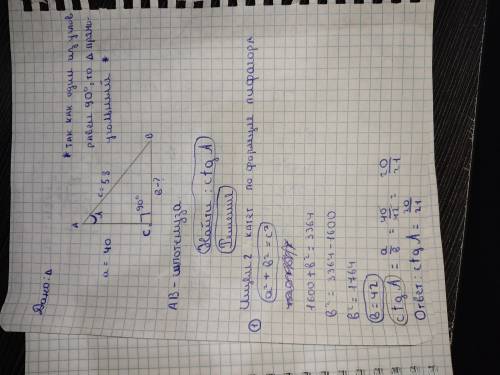 Дано: Δ
* так как один из углов
равен 90°, то Δ прямо-
угольный *
A
A
a = 40
c = 58
B
C
90°
в - ?
AB - гипотенуза
Найти: ctg A
Решение
1 Ищем 2 катет по формуле пифагора
a² + в² = c²
1600 + в² = 3364
в² = 3364 - 1600
в² = 1764
в = 42
ctg A = a/в = 40/42 = 20/21
Ответ: ctg A = 20/21